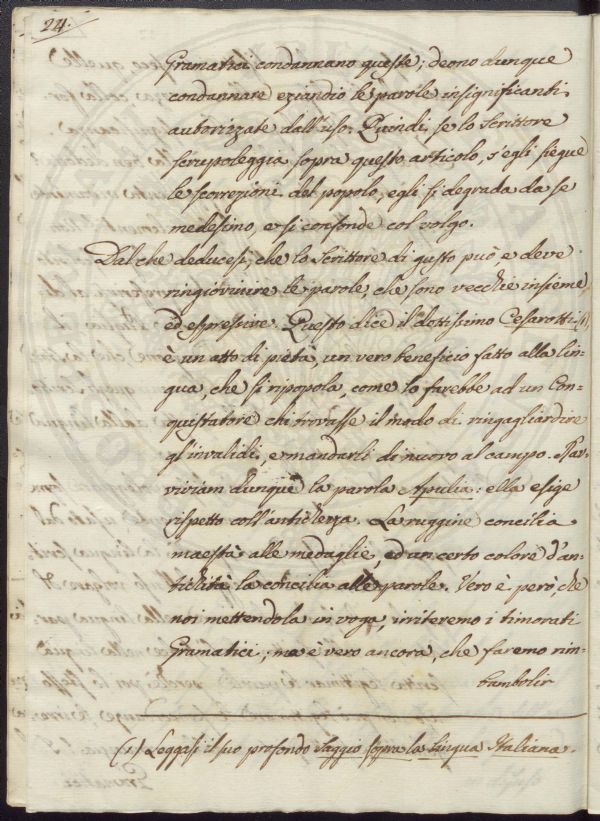 24.
Gramatici condannano queste; deono dunque
condannare eziandio le parole insignificanti
autorizzate dall'uso. Quindi, se lo Scrittore
scrupoleggia sopra questo articolo, s'egli siegue
le scorrezioni del popolo, egli si degrada da se
medesimo, e si confonde col volgo.
Dal che deducesi, che lo Scrittore di gusto può e deve
ringiovinire le parole, che sono vecchie insieme,
ed espressive. Questo dice il dottissimo Cesarotti (1)
è un atto di pietà, un vero beneficio fatto alla lin=
gua, che si ripopola, come lo farebbe ad un Con=
quistatore chi trovasse il modo di ringagliardire
gl'invalidi, e mandarli di nuovo al campo. Rav=
viviam dunque la parola Apulia: ella esige
rispetto coll'antichezza. La ruggine concilia
maestà alle medaglie, ed un certo colore d'an=
tichità la concilia alle parole. Vero è però, che
noi mettendola in voga, irriteremo i timorati
Gramatici; ma è vero ancora, che faremo rim=
bambolir
(1) Leggasi il suo profondo Saggio sopra la Lingua Italiana.